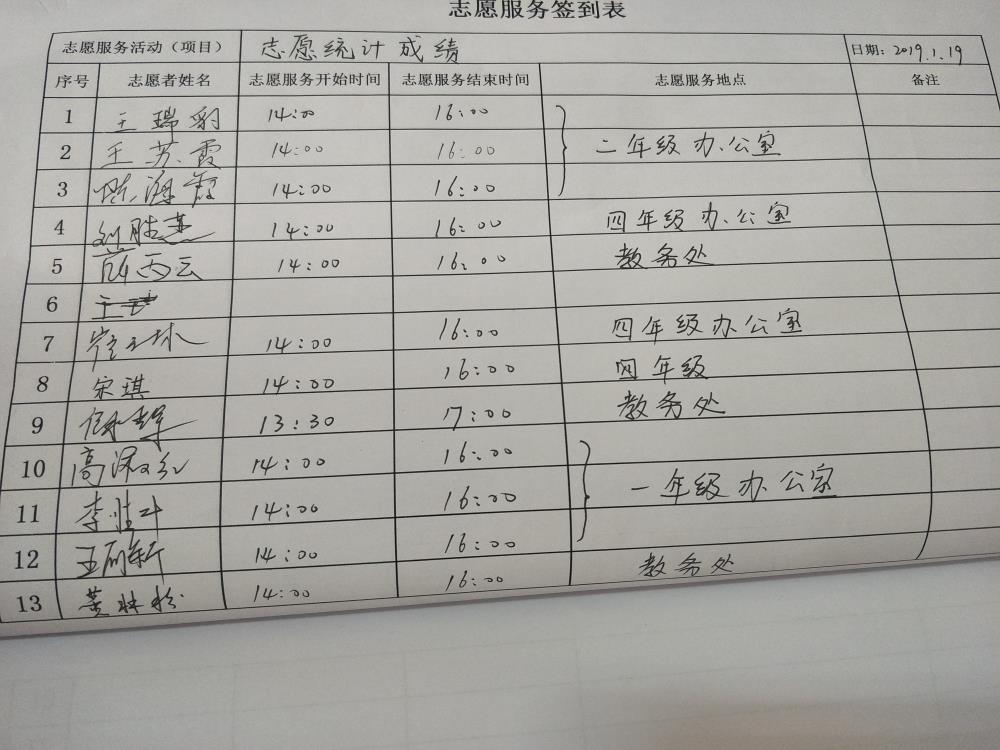 志愿服务签到表
志愿服务活动（项目） 志愿统计成绩 日期：2019.1.19
序号 志愿者姓名 志愿服务开始时间 志愿服务结束时间 志愿服务地点 备注
1 王瑞豹 14:00 16:00
2 王苏霞 14:00 16:00 二年级办公室
3 陈海霞 14:00 16:00
4 刘胜 14:00 16:00 四年级办公室
5 薛西云 14:00 16:00 教务处
6 王
7 14:00 16:00 四年级办公室
8 宋琪 14:00 16:00 四年级
9 13:30 17:00 教务处
10 高 14:00 16:00
11 李胜斗 14:00 16:00 一年级办公室
12 王 14:00 16:00
13 黄林松 14:00 16:00 教务处